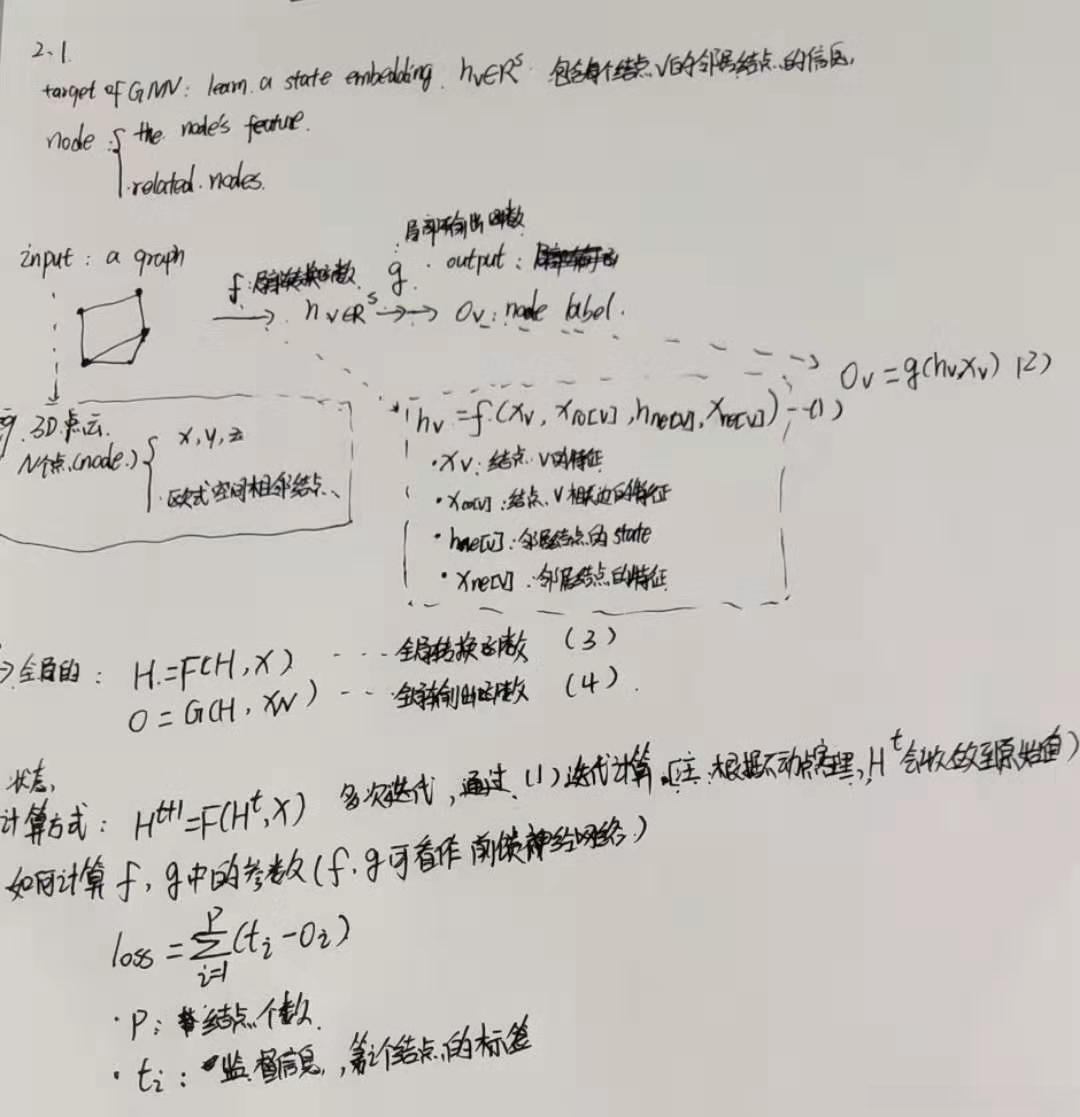 2.1
target of GNN: learn a state embedding. hv∈R^s 包含每个结点v的邻居结点的信息,
node : { the node's feature.
related nodes.
局部输出函数
input : a graph
f:局部转换函数 g. output :
→ hv∈R^s →→ Ov: node label.
Ov = g(hv,xv) (2)
hv = f(xv, xco[v], hne[v], xne[v]) --(1)
eg. 3D点云.
N个点(node.) { x, y, z
欧式空间相邻结点、
· xv: 结点v的特征
· xco[v] : 结点v相关边的特征
· hne[v] : 邻居结点的state
· xne[v] : 邻居结点的特征
→全局的: H = F(H, X) --- 全局转换函数 (3)
O = G(H, XN) --- 全局输出函数 (4).
状态,
计算方式: H^t+1=F(H^t, X) 多次迭代, 通过(1)迭代计算。(注:根据不动点定理, H^t会收敛至原始值)
如何计算f, g中的参数(f, g可看作前馈神经网络.)
loss = Σ_{i=1}^{P} (ti - Oi)
· P: 结点个数.
· ti: 监督信息, 第i个结点的标签